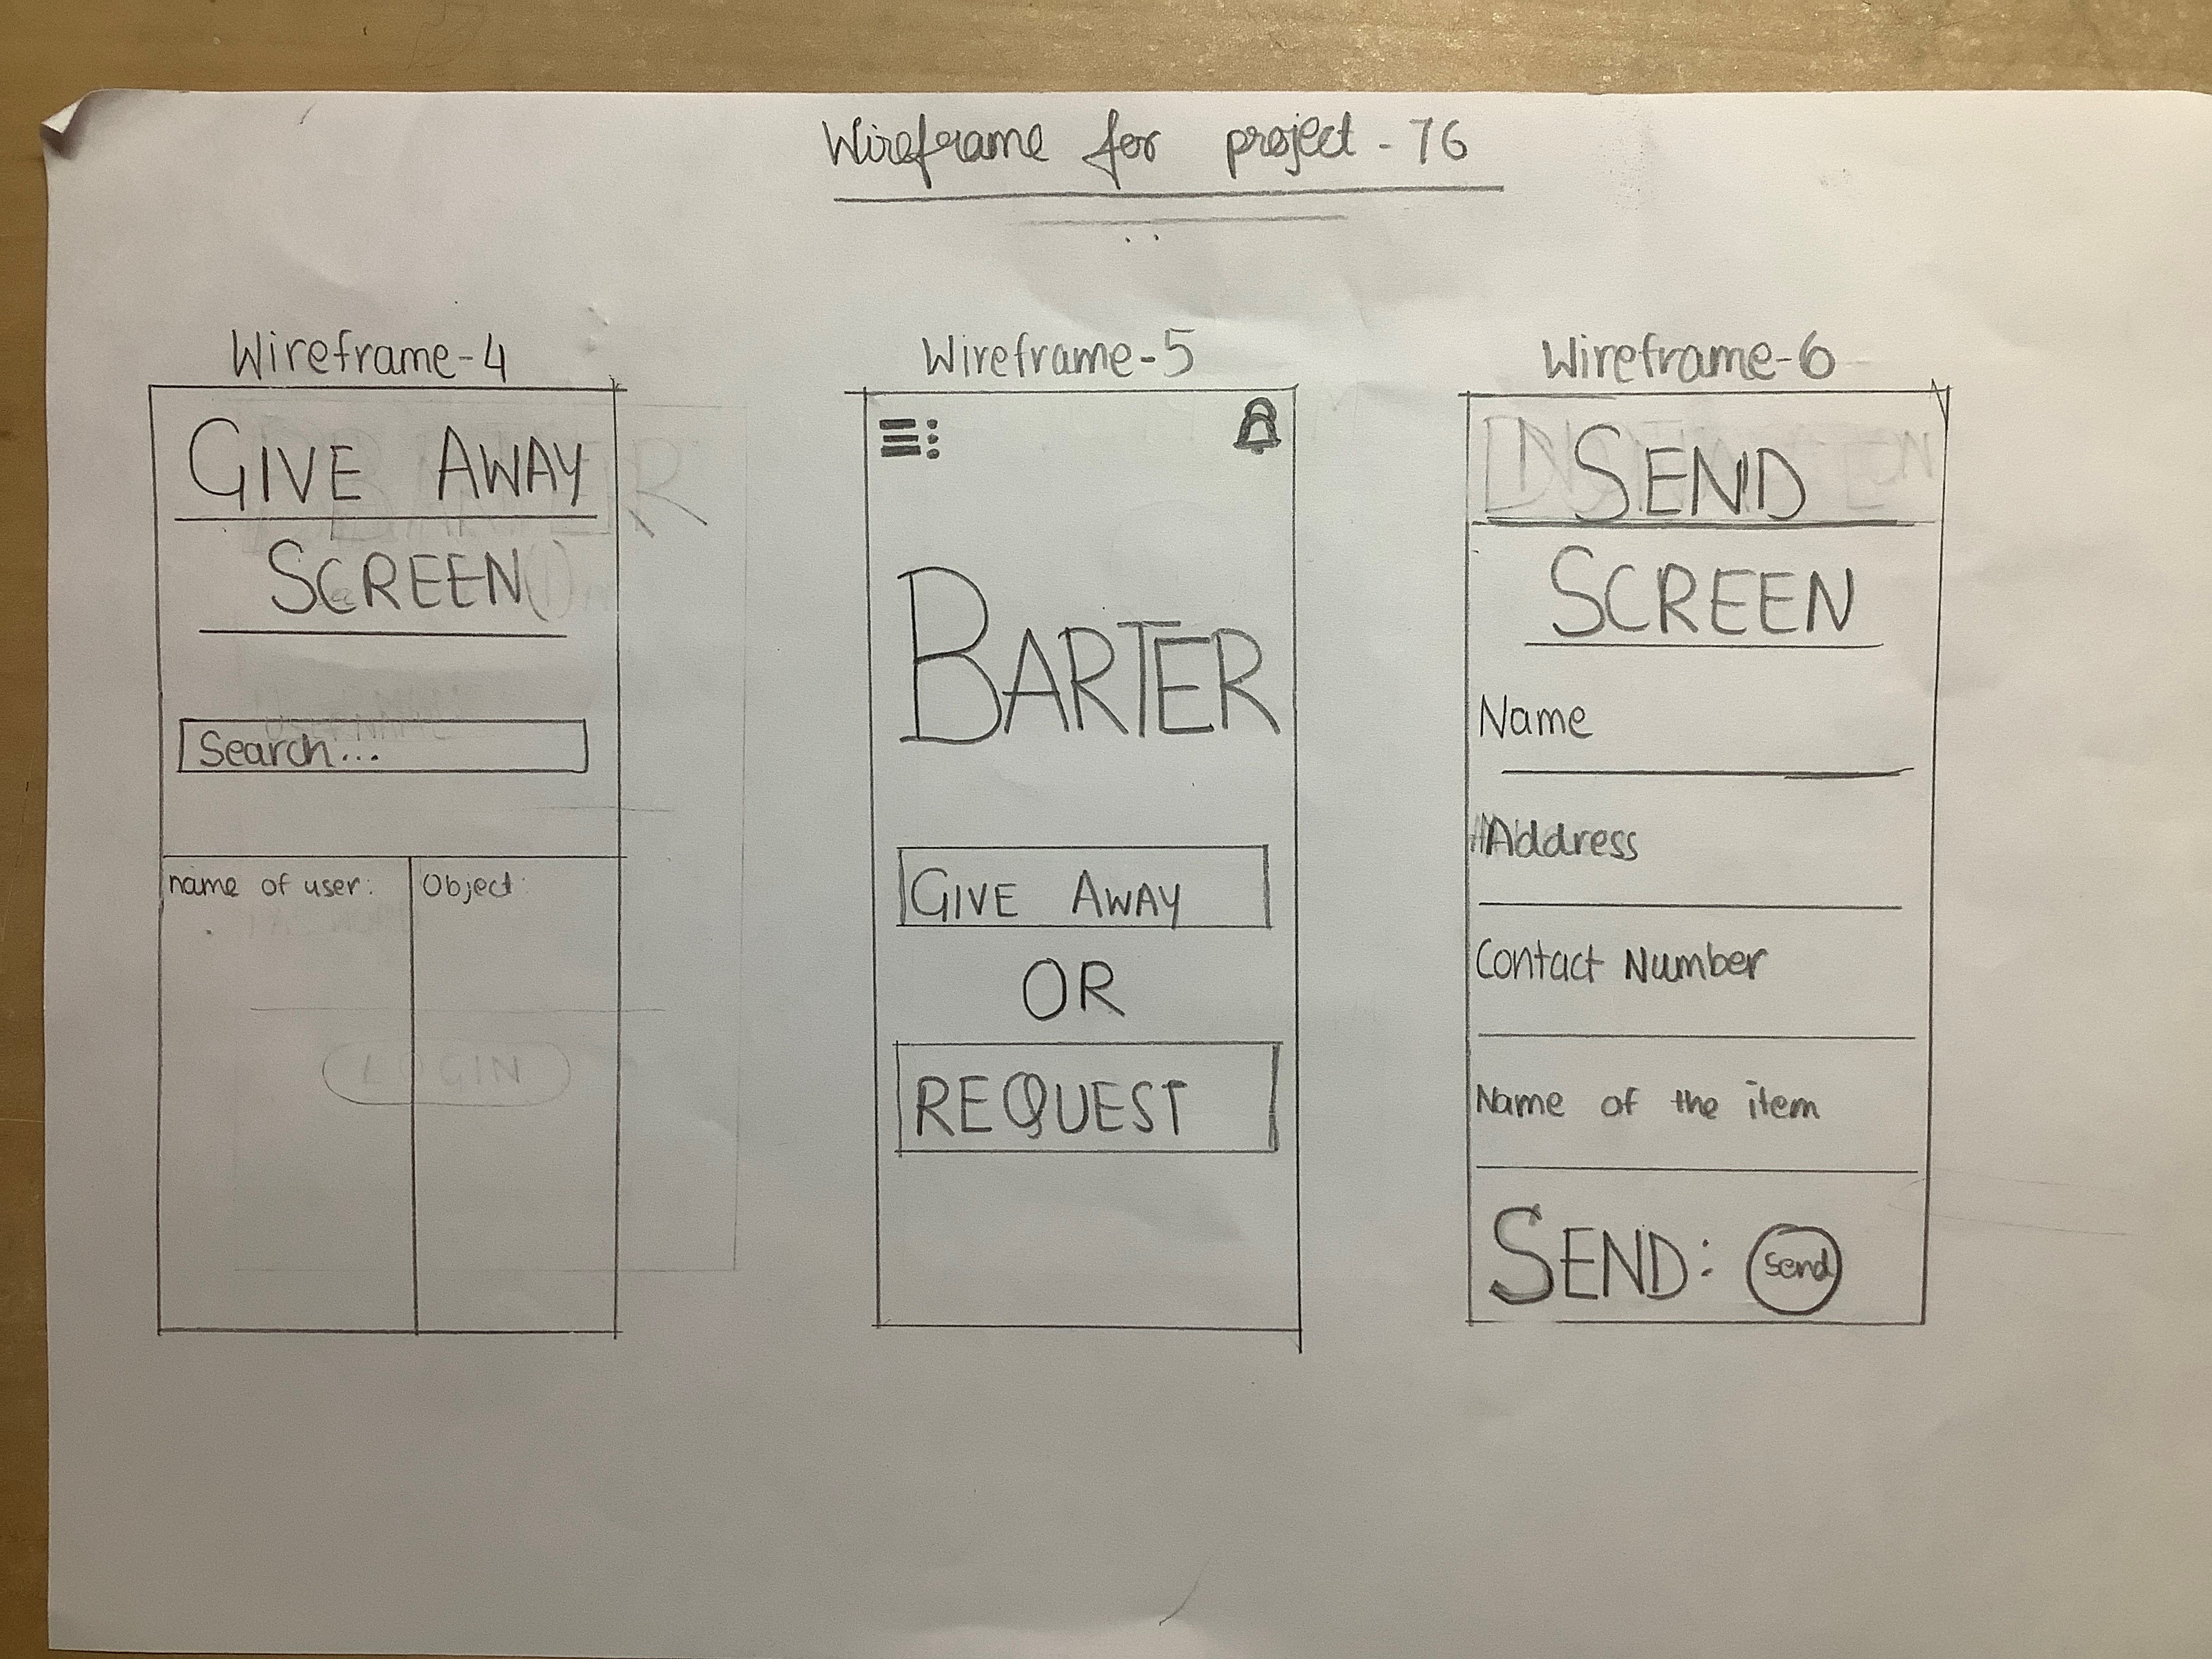 Wireframe for project - 76
Wireframe-4
GIVE AWAY
SCREEN
Search...
name of user:
Object:
Wireframe-5
BARTER
GIVE AWAY
OR
REQUEST
Wireframe-6
SEND
SCREEN
Name
Address
Contact Number
Name of the item
SEND: Send
LOGIN